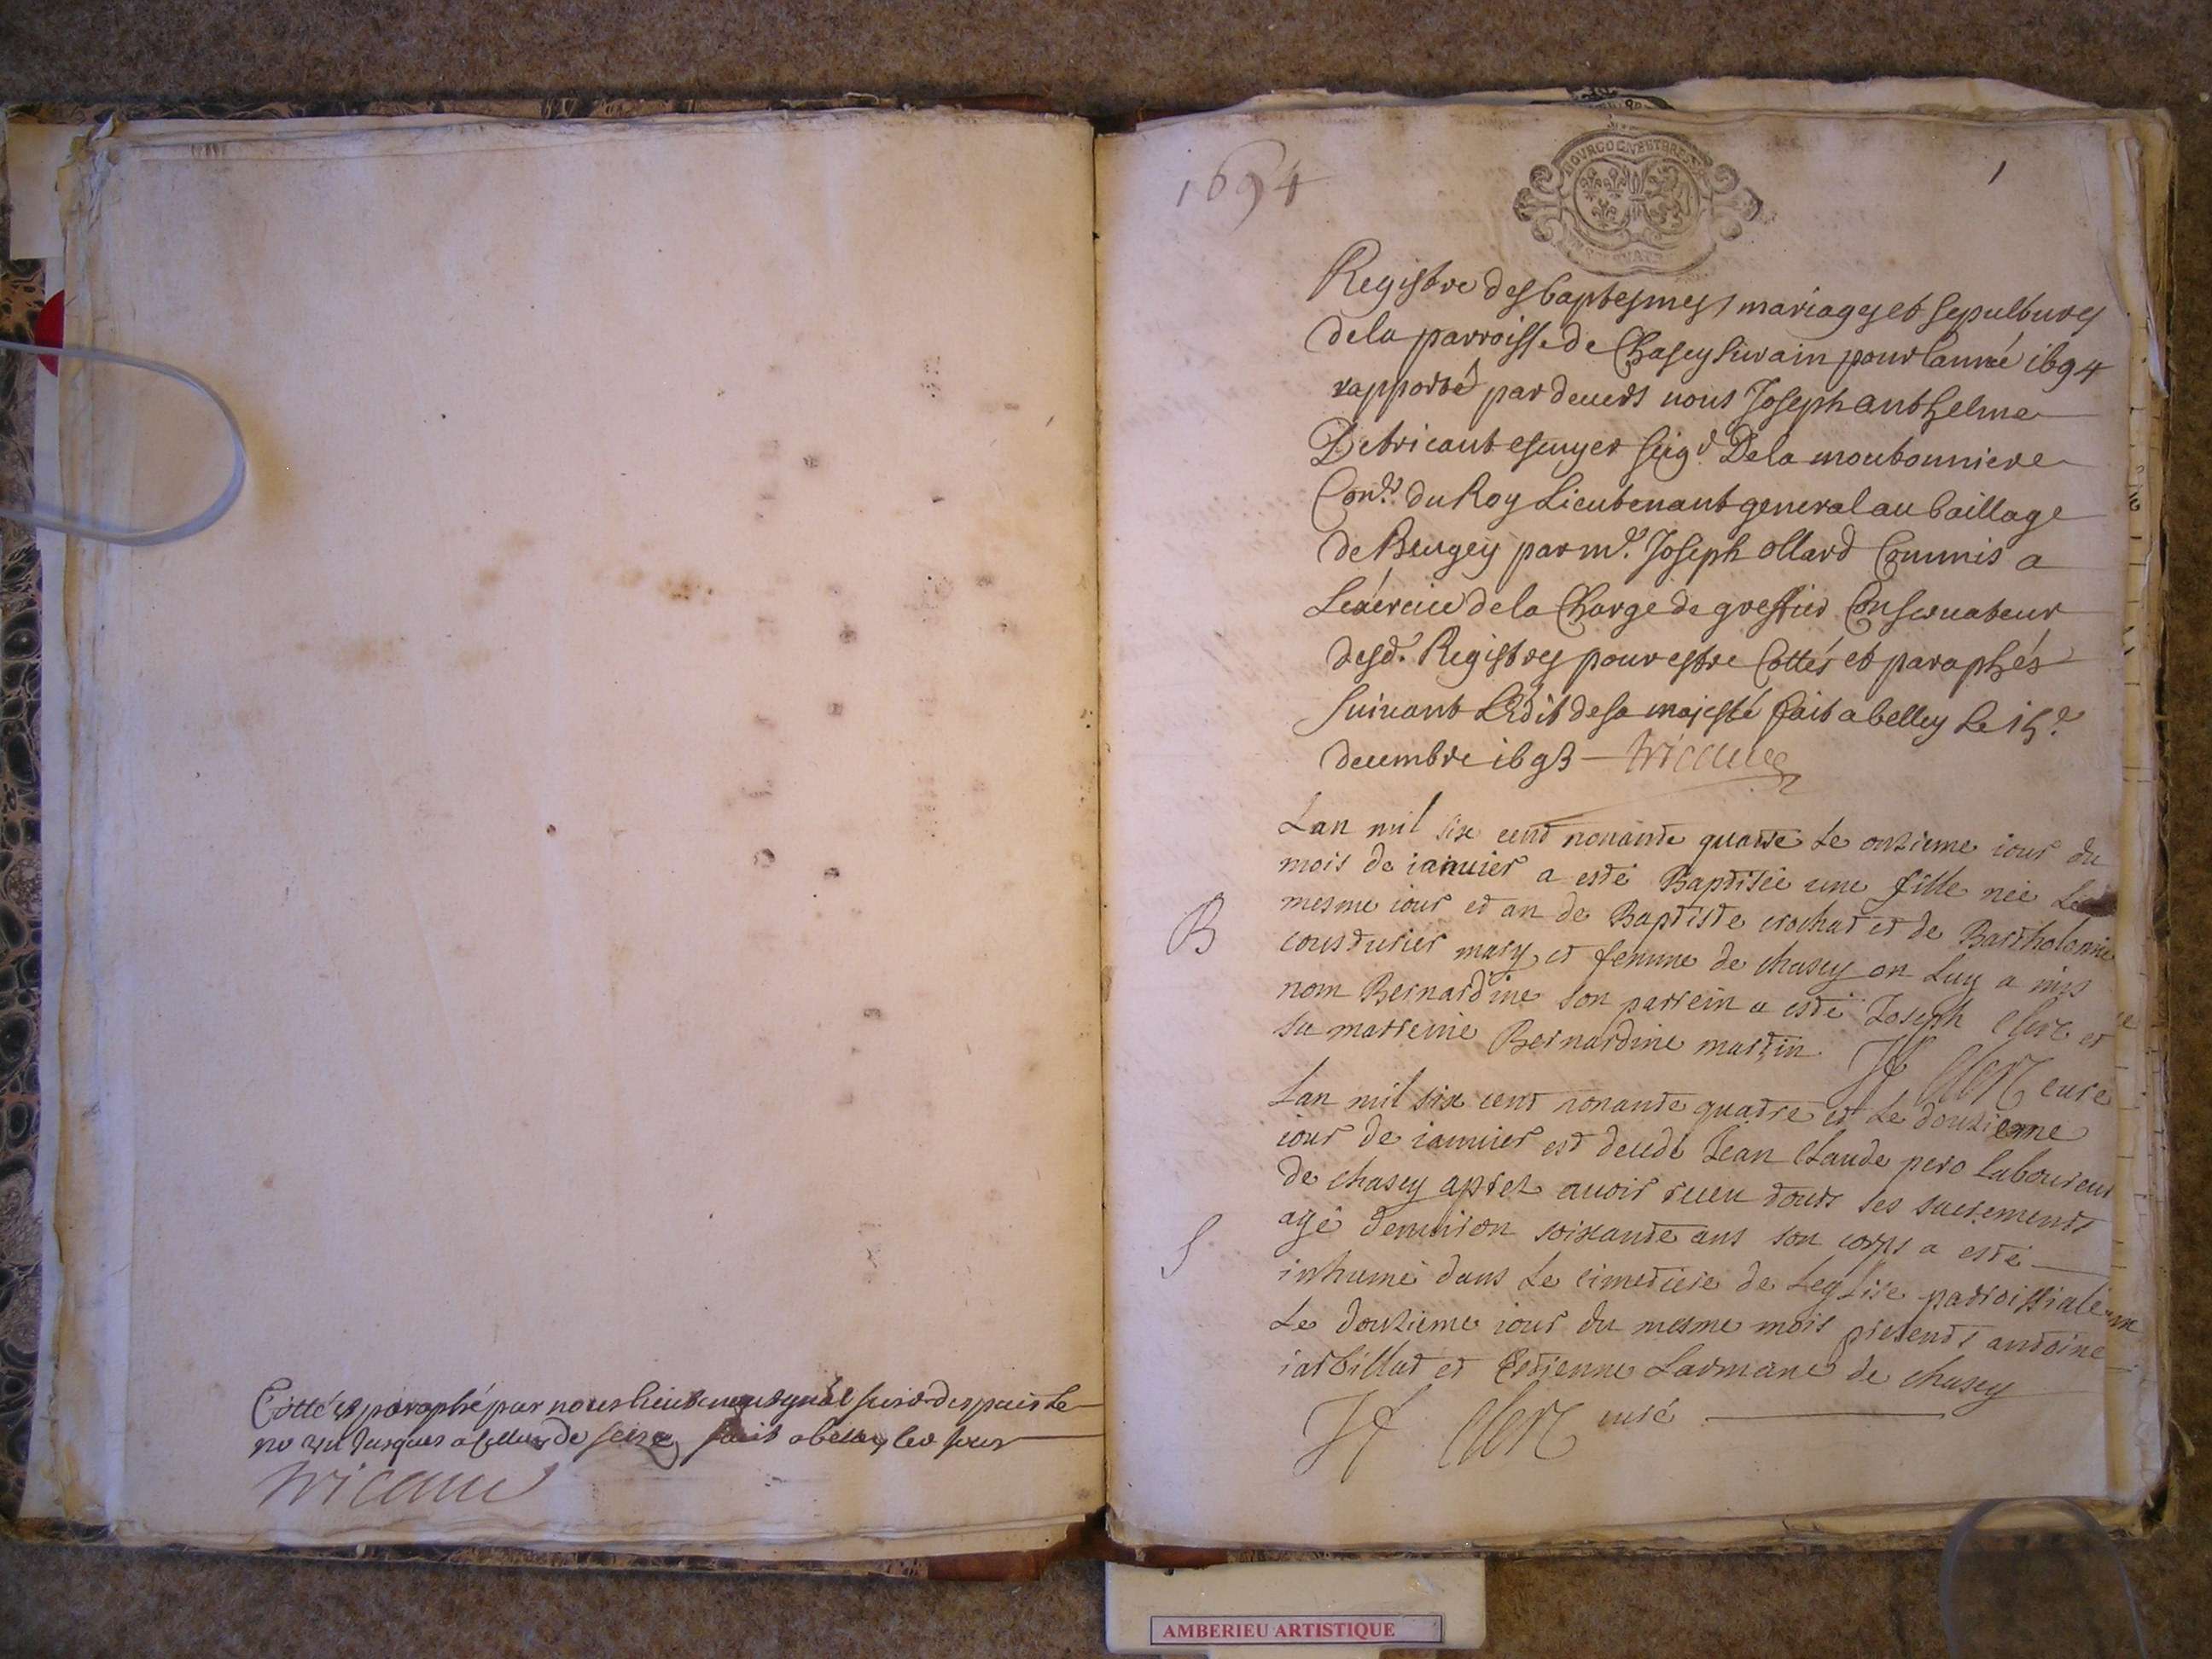 Cotté et paraphé par nous lieutenant gnâl susd. despuis le
no un jusques a celluy de seize fait a belley led jour
Tricaud
1694
1
BOURGOGNE ET BRESSE
Registre des baptesmes mariages et sepultures
de la parroisse de Chasey sur ain pour lanneé 1694
rapporté par deuers nous Joseph anthelme
De tricaut escuyer seigr. De la moutonniere
Conser. du Roy Lieutenant general au baillage
de Beugey par mr. Joseph ollard Commis a
Lexercice de la Charge de greffier Conseruateur
desd. Registres pour estre Cottés et paraphés
suiuant LEdit de sa majesté fait a belley Le 15e.
decembre 1693 Tricaud
Lan mil six cent nonante quatre Le onzieme iour du
mois de ianuier a esté Baptisée une fille née Le
mesme iour et an de Baptiste crochat et de Bartholomie
B
cousturier mary et femme de chasey on Luy a mis
nom Bernardine son parrein a esté Joseph Clerc et
sa marreine Bernardine martin. Jf Clerc curé
Lan mil six cent nonante quatre et Le douzieme
iour de ianuier est decedé Jean Claude pero laboureur
de chasey apres auoir receu touts ses sacrements
agé denuiron soixante ans son corps a esté
S
inhumé dans Le cimetiere de Leglise parroissiale
Le douzieme iour du mesme mois presents antoine
iarbillat et Estienne Larmane de chasey
Jf Clerc curé
AMBERIEU ARTISTIQUE